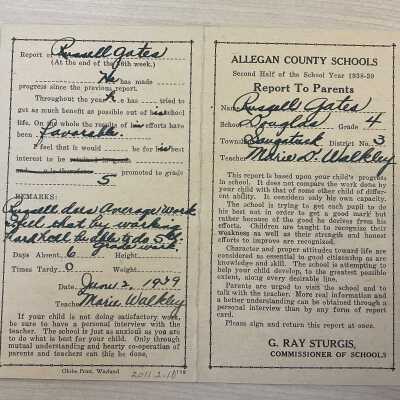 Report of Russell Gates
(At the end of the 36th week.)
He has made
progress since the previous report.
Throughout the year he has tried to
get as much benefit as possible out of his school
life. On the whole the results of his efforts have
been favorable.
I feel that it would be for his best
interest to be
and is therefore promoted to grade
5
REMARKS:
Russell does Average Work
I feel that by working
hard he'll be able to do 5th
grade work.
Days Absent 6 Height
Times Tardy 0 Weight
Date June 2, 1939
Teacher Marie Walkley
If your child is not doing satisfactory work
be sure to have a personal interview with the
teacher. The school is just as anxious as you are
to do what is best for your child. Only through
mutual understanding and hearty co-operation of
parents and teachers can this be done.
Globe Print, Wayland
2011.2.11
ALLEGAN COUNTY SCHOOLS
Second Half of the School Year 1938-39
Report To Parents
Name Russell Gates
School Douglas Grade 4
Township Saugatuck District No. 3
Teacher Marie D. Walkley
This report is based upon your child's progress
in school. It does not compare the work done by
your child with that of some other child of differ-
ent ability. It considers only his own capacity.
The school is trying to get each pupil to do
his best not in order to get a good mark but
rather because of the good he derives from his
efforts. Children are taught to recognize their
weakness as well as their strength and honest
efforts to improve are recognized.
Character and proper attitudes toward life are
considered as essential to good citizenship as are
knowledge and skill. The school is attempting to
help your child develop, to the greatest possible
extent, along every desirable line.
Parents are urged to visit the school and to
talk with the teacher. More real information and
a better understanding can be obtained through a
personal interview than by any form of report
card.
Please sign and return this report at once.
G. RAY STURGIS,
COMMISSIONER OF SCHOOLS